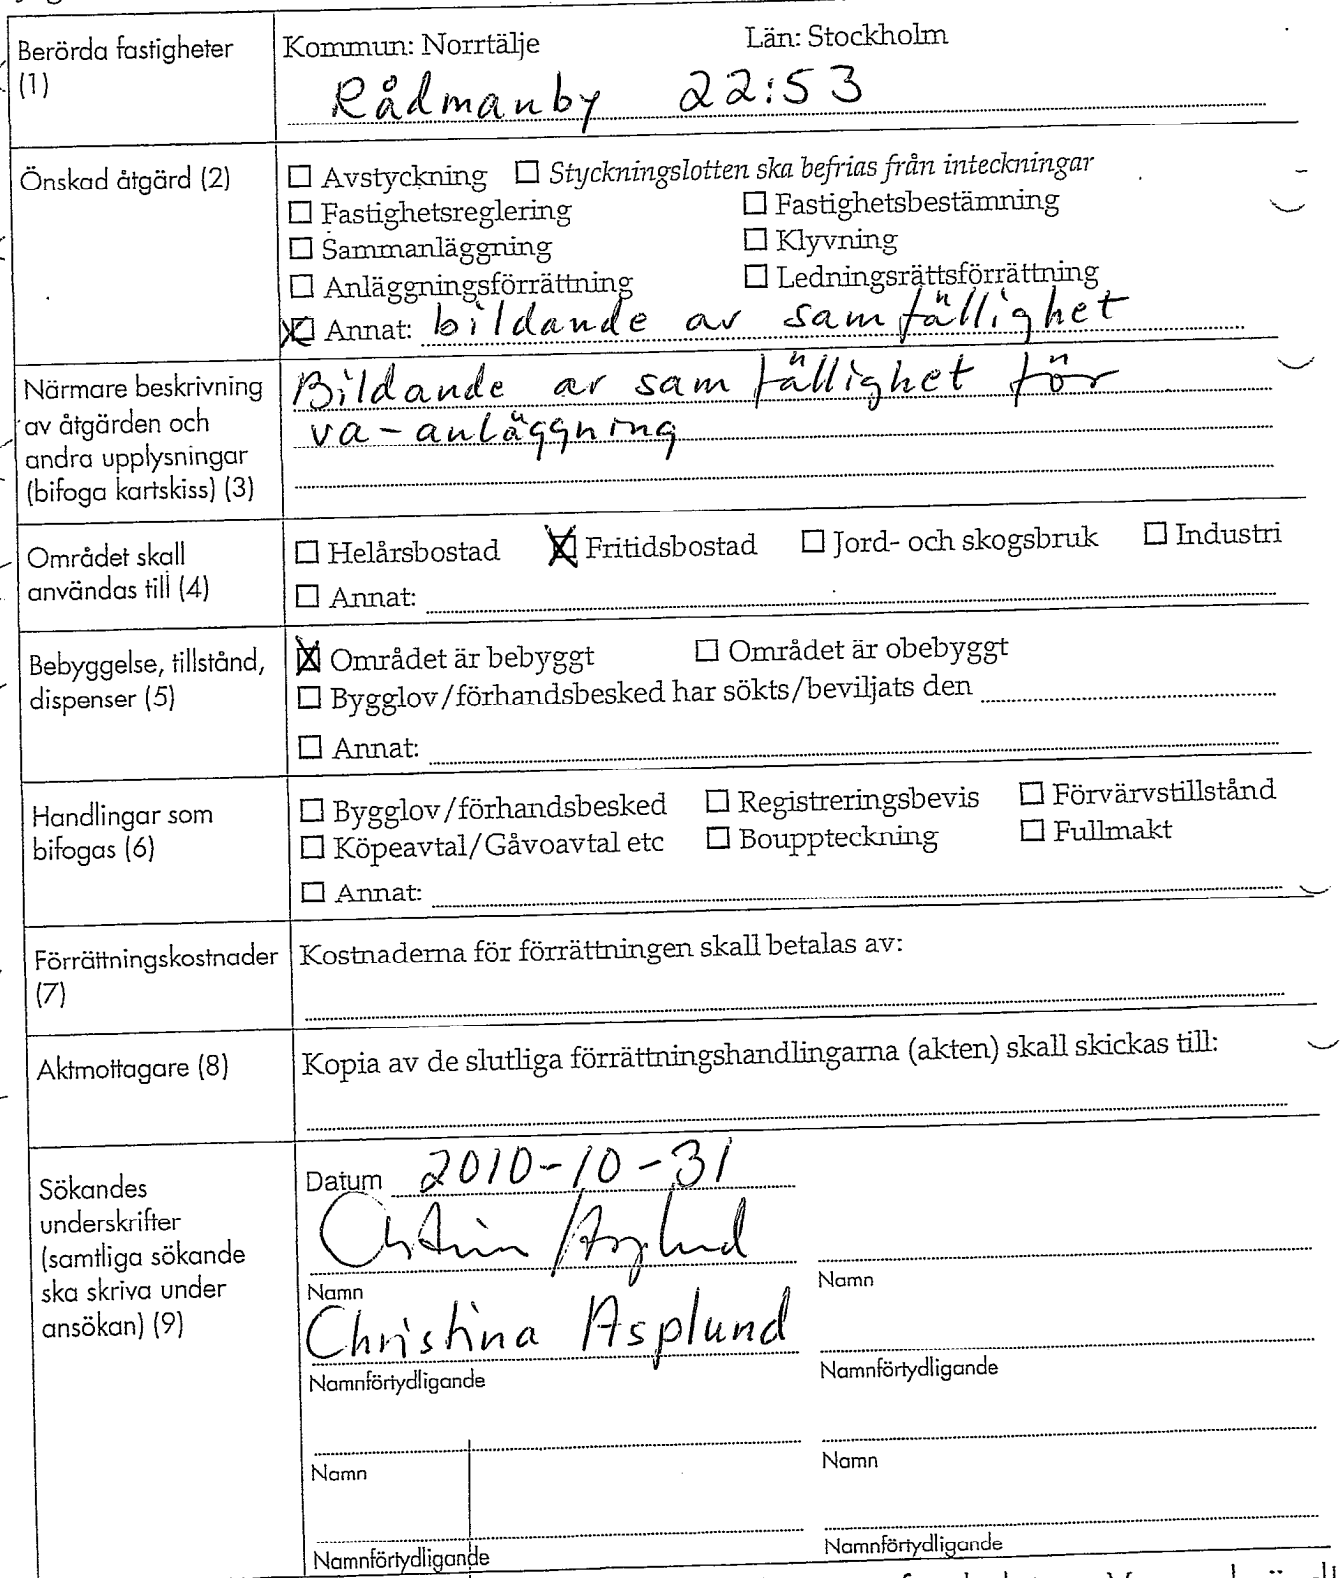 Berörda fastigheter
(1)
Kommun: Norrtälje Län: Stockholm
Rådmanby 22:53
Önskad åtgärd (2)
☐ Avstyckning ☐ Styckningslotten ska befrias från inteckningar
☐ Fastighetsreglering ☐ Fastighetsbestämning
☐ Sammanläggning ☐ Klyvning
☐ Anläggningsförrättning ☐ Ledningsrättsförrättning
☒ Annat: bildande av samfällighet
Närmare beskrivning
av åtgärden och
andra upplysningar
(bifoga kartskiss) (3)
Bildande av samfällighet för
va-anläggning
Området skall
användas till (4)
☐ Helårsbostad ☒ Fritidsbostad ☐ Jord- och skogsbruk ☐ Industri
☐ Annat:
Bebyggelse, tillstånd,
dispenser (5)
☒ Området är bebyggt ☐ Området är obebyggt
☐ Bygglov/förhandsbesked har sökts/beviljats den
☐ Annat:
Handlingar som
bifogas (6)
☐ Bygglov/förhandsbesked ☐ Registreringsbevis ☐ Förvärvstillstånd
☐ Köpeavtal/Gåvoavtal etc ☐ Bouppteckning ☐ Fullmakt
☐ Annat:
Förrättningskostnader
(7)
Kostnaderna för förrättningen skall betalas av:
Aktmottagare (8)
Kopia av de slutliga förrättningshandlingarna (akten) skall skickas till:
Sökandes
underskrifter
(samtliga sökande
ska skriva under
ansökan) (9)
Datum 2010-10-31
Christina Asplund
Namn Namn
Christina Asplund
Namnförtydligande Namnförtydligande
Namn Namn
Namnförtydligande Namnförtydligande